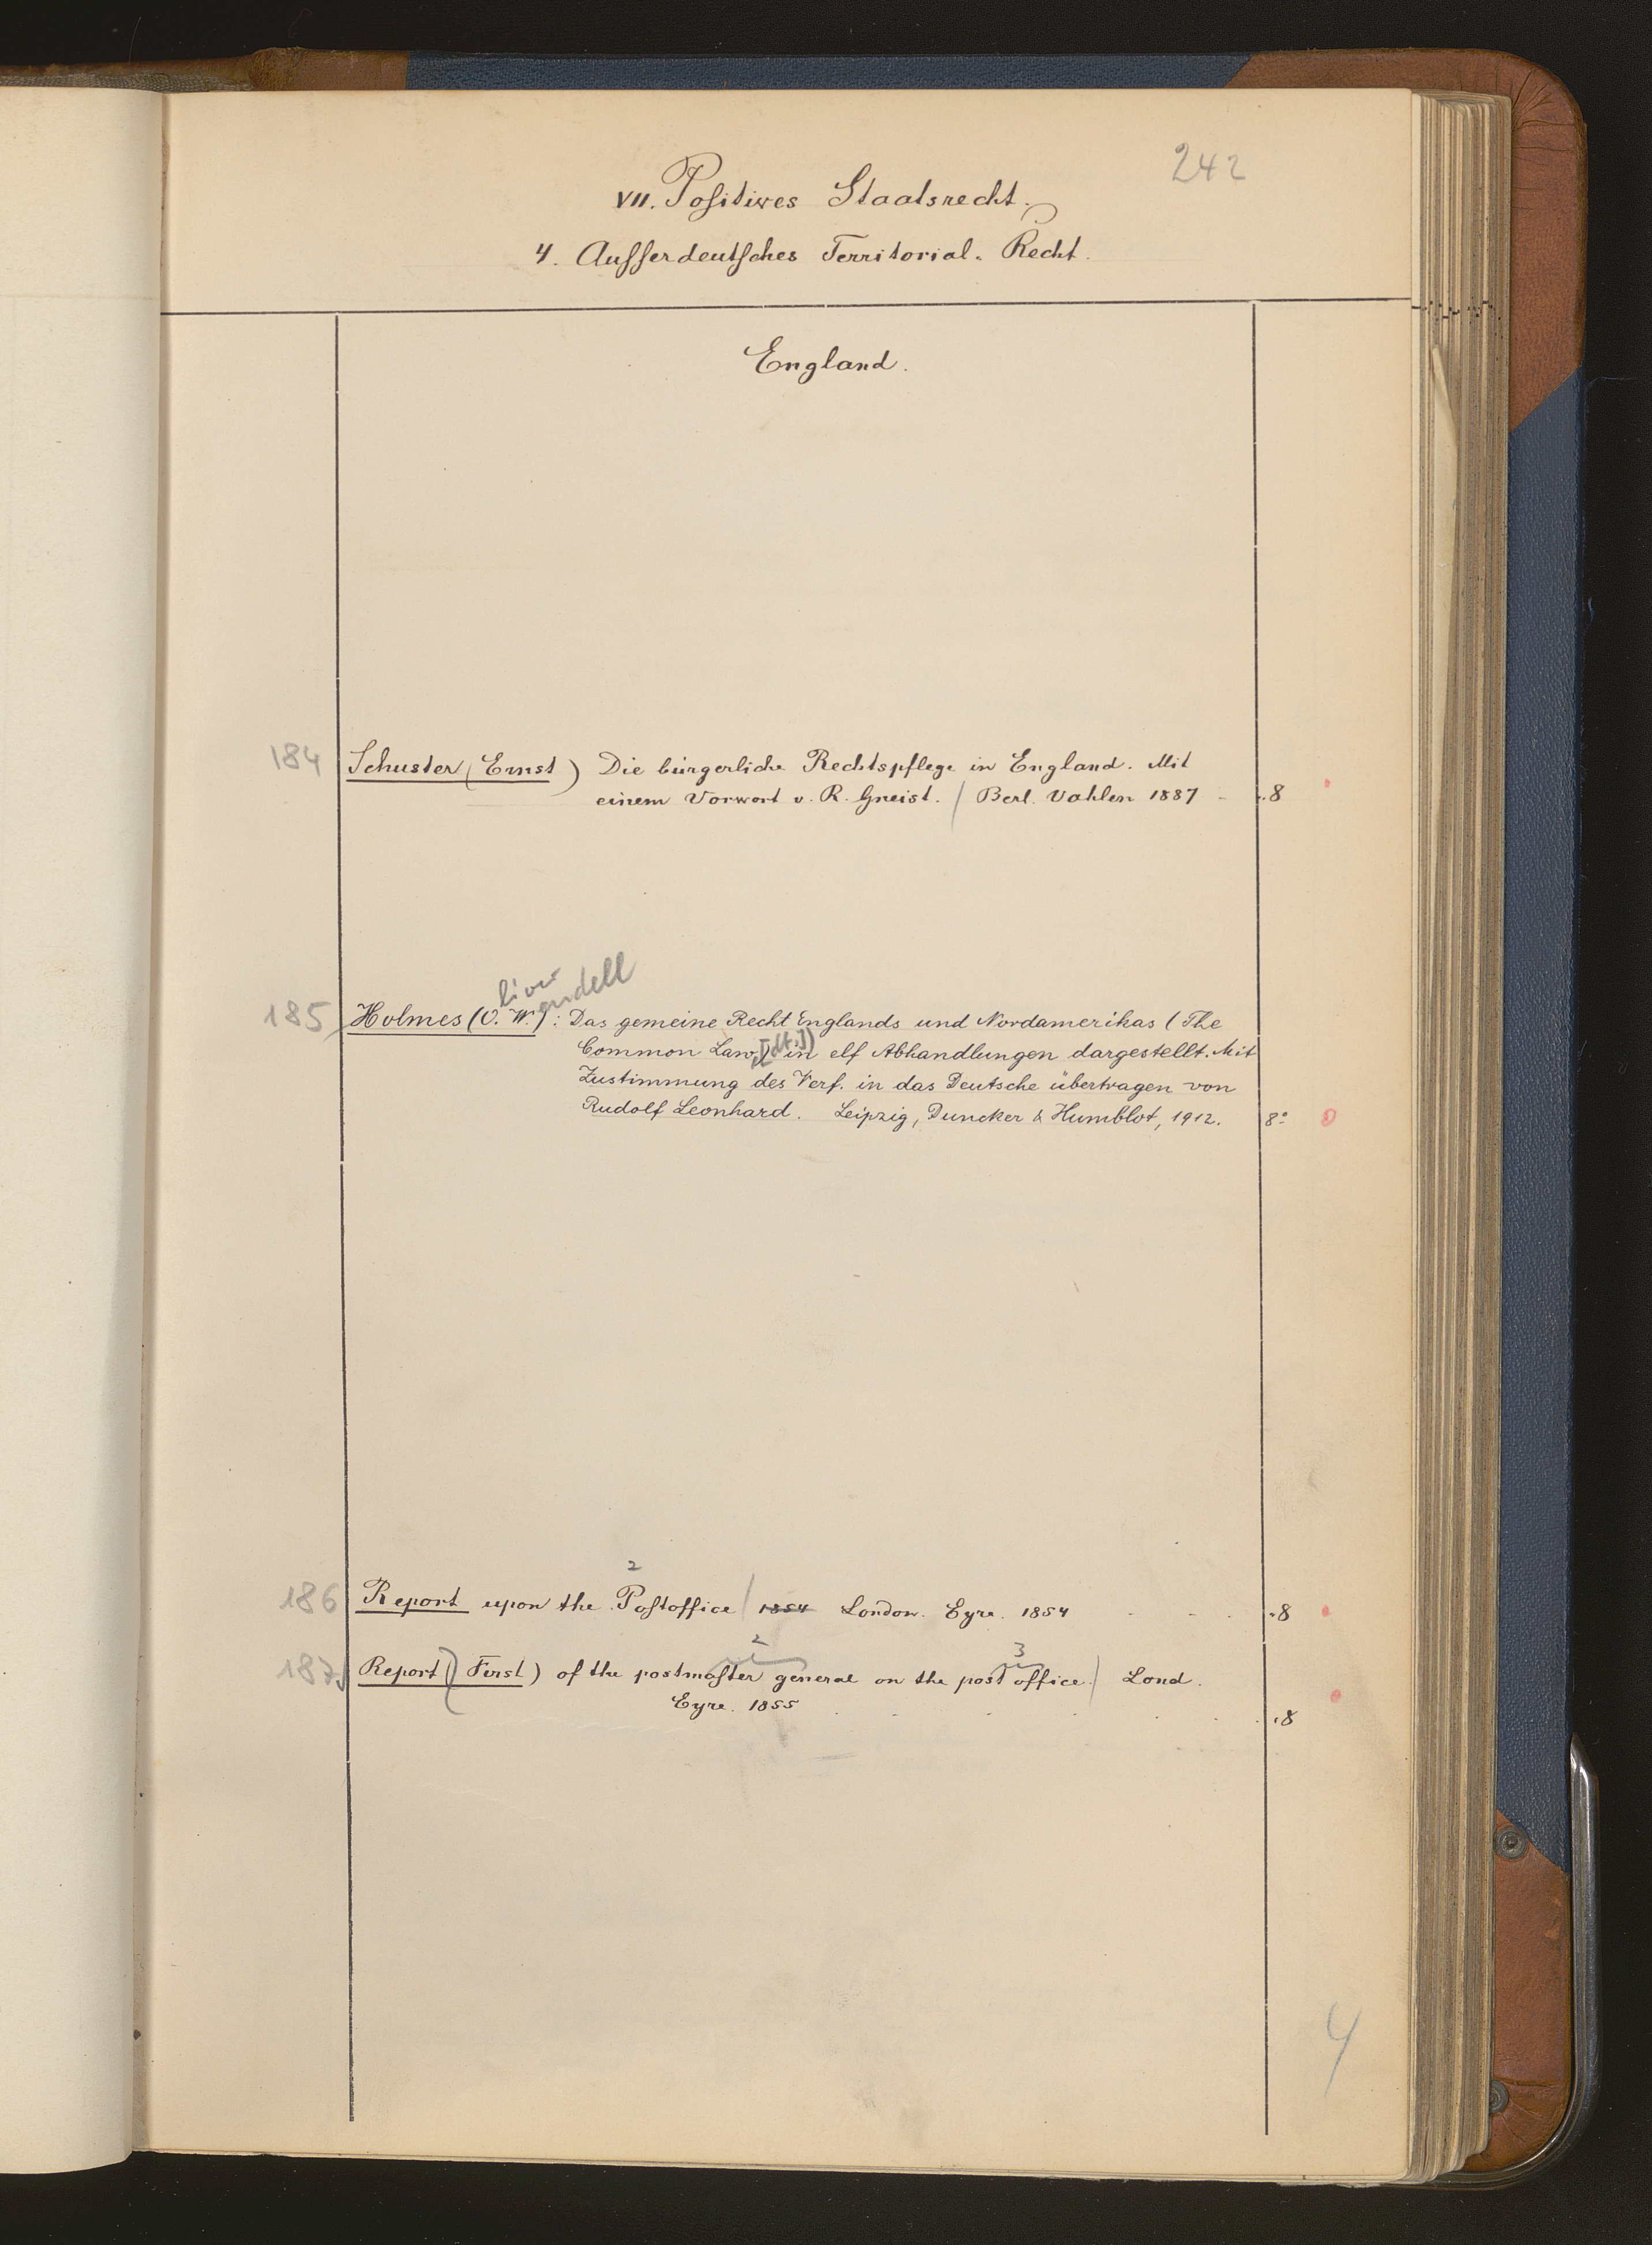 242
VII. Positives Staatsrecht.
4. Ausserdeutsches Territorial-Recht.
England.
184 Schuster (Ernst) Die bürgerliche Rechtspflege in England. Mit
einem Vorwort v. R. Gneist. / Berl. Vahlen 1887 - .8
liver endell
185 Holmes (O. W.): Das gemeine Recht Englands und Nordamerikas (The
Common Law, [dt.]) in elf Abhandlungen dargestellt. Mit
Zustimmung des Verf. in das Deutsche übertragen von
Rudolf Leonhard. Leipzig, Duncker & Humblot, 1912. 8°
2
186 Report upon the Postoffice / 1854 London. Eyre. 1854 . . . .8
2 3
187 Report (First) of the postmaster general on the post office. / Lond.
Eyre. 1855 . . . . . . .8
4